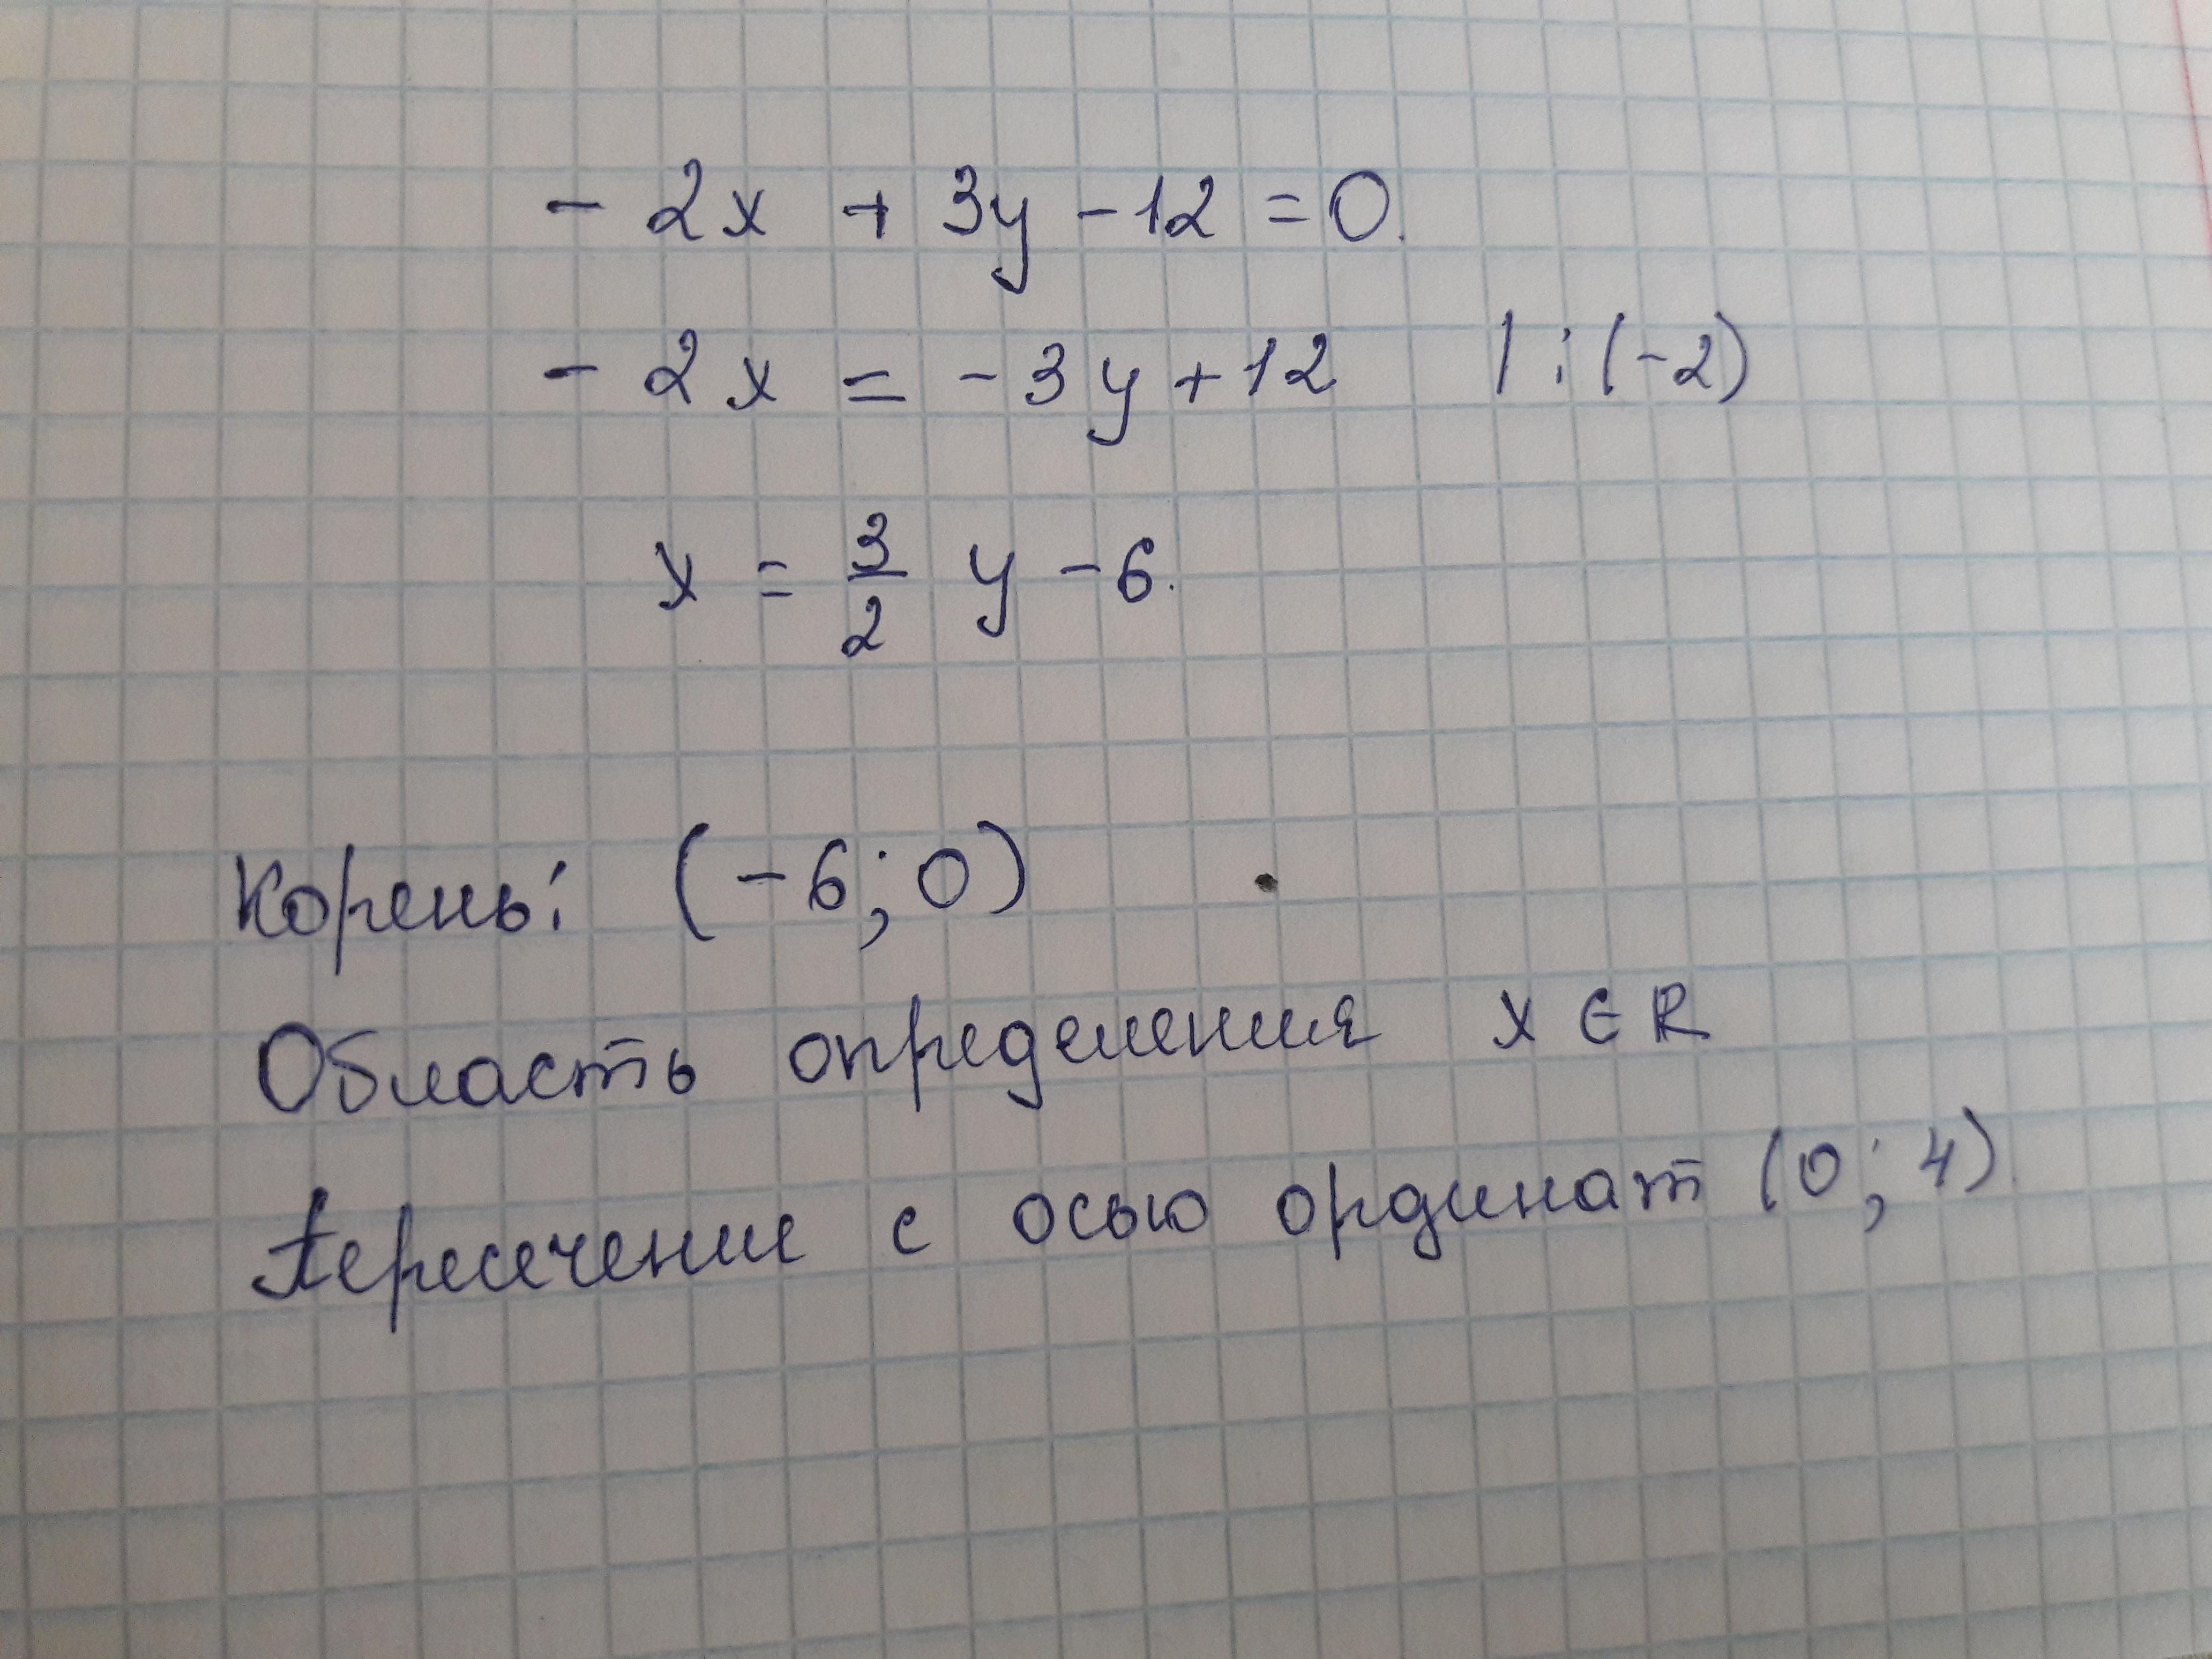 - 2x + 3y - 12 = 0.
- 2x = - 3y + 12 | : (-2)
x = 3/2 y - 6.
Корень: (-6; 0)
Область определения x ∈ R
Пересечение с осью ординат (0; 4).